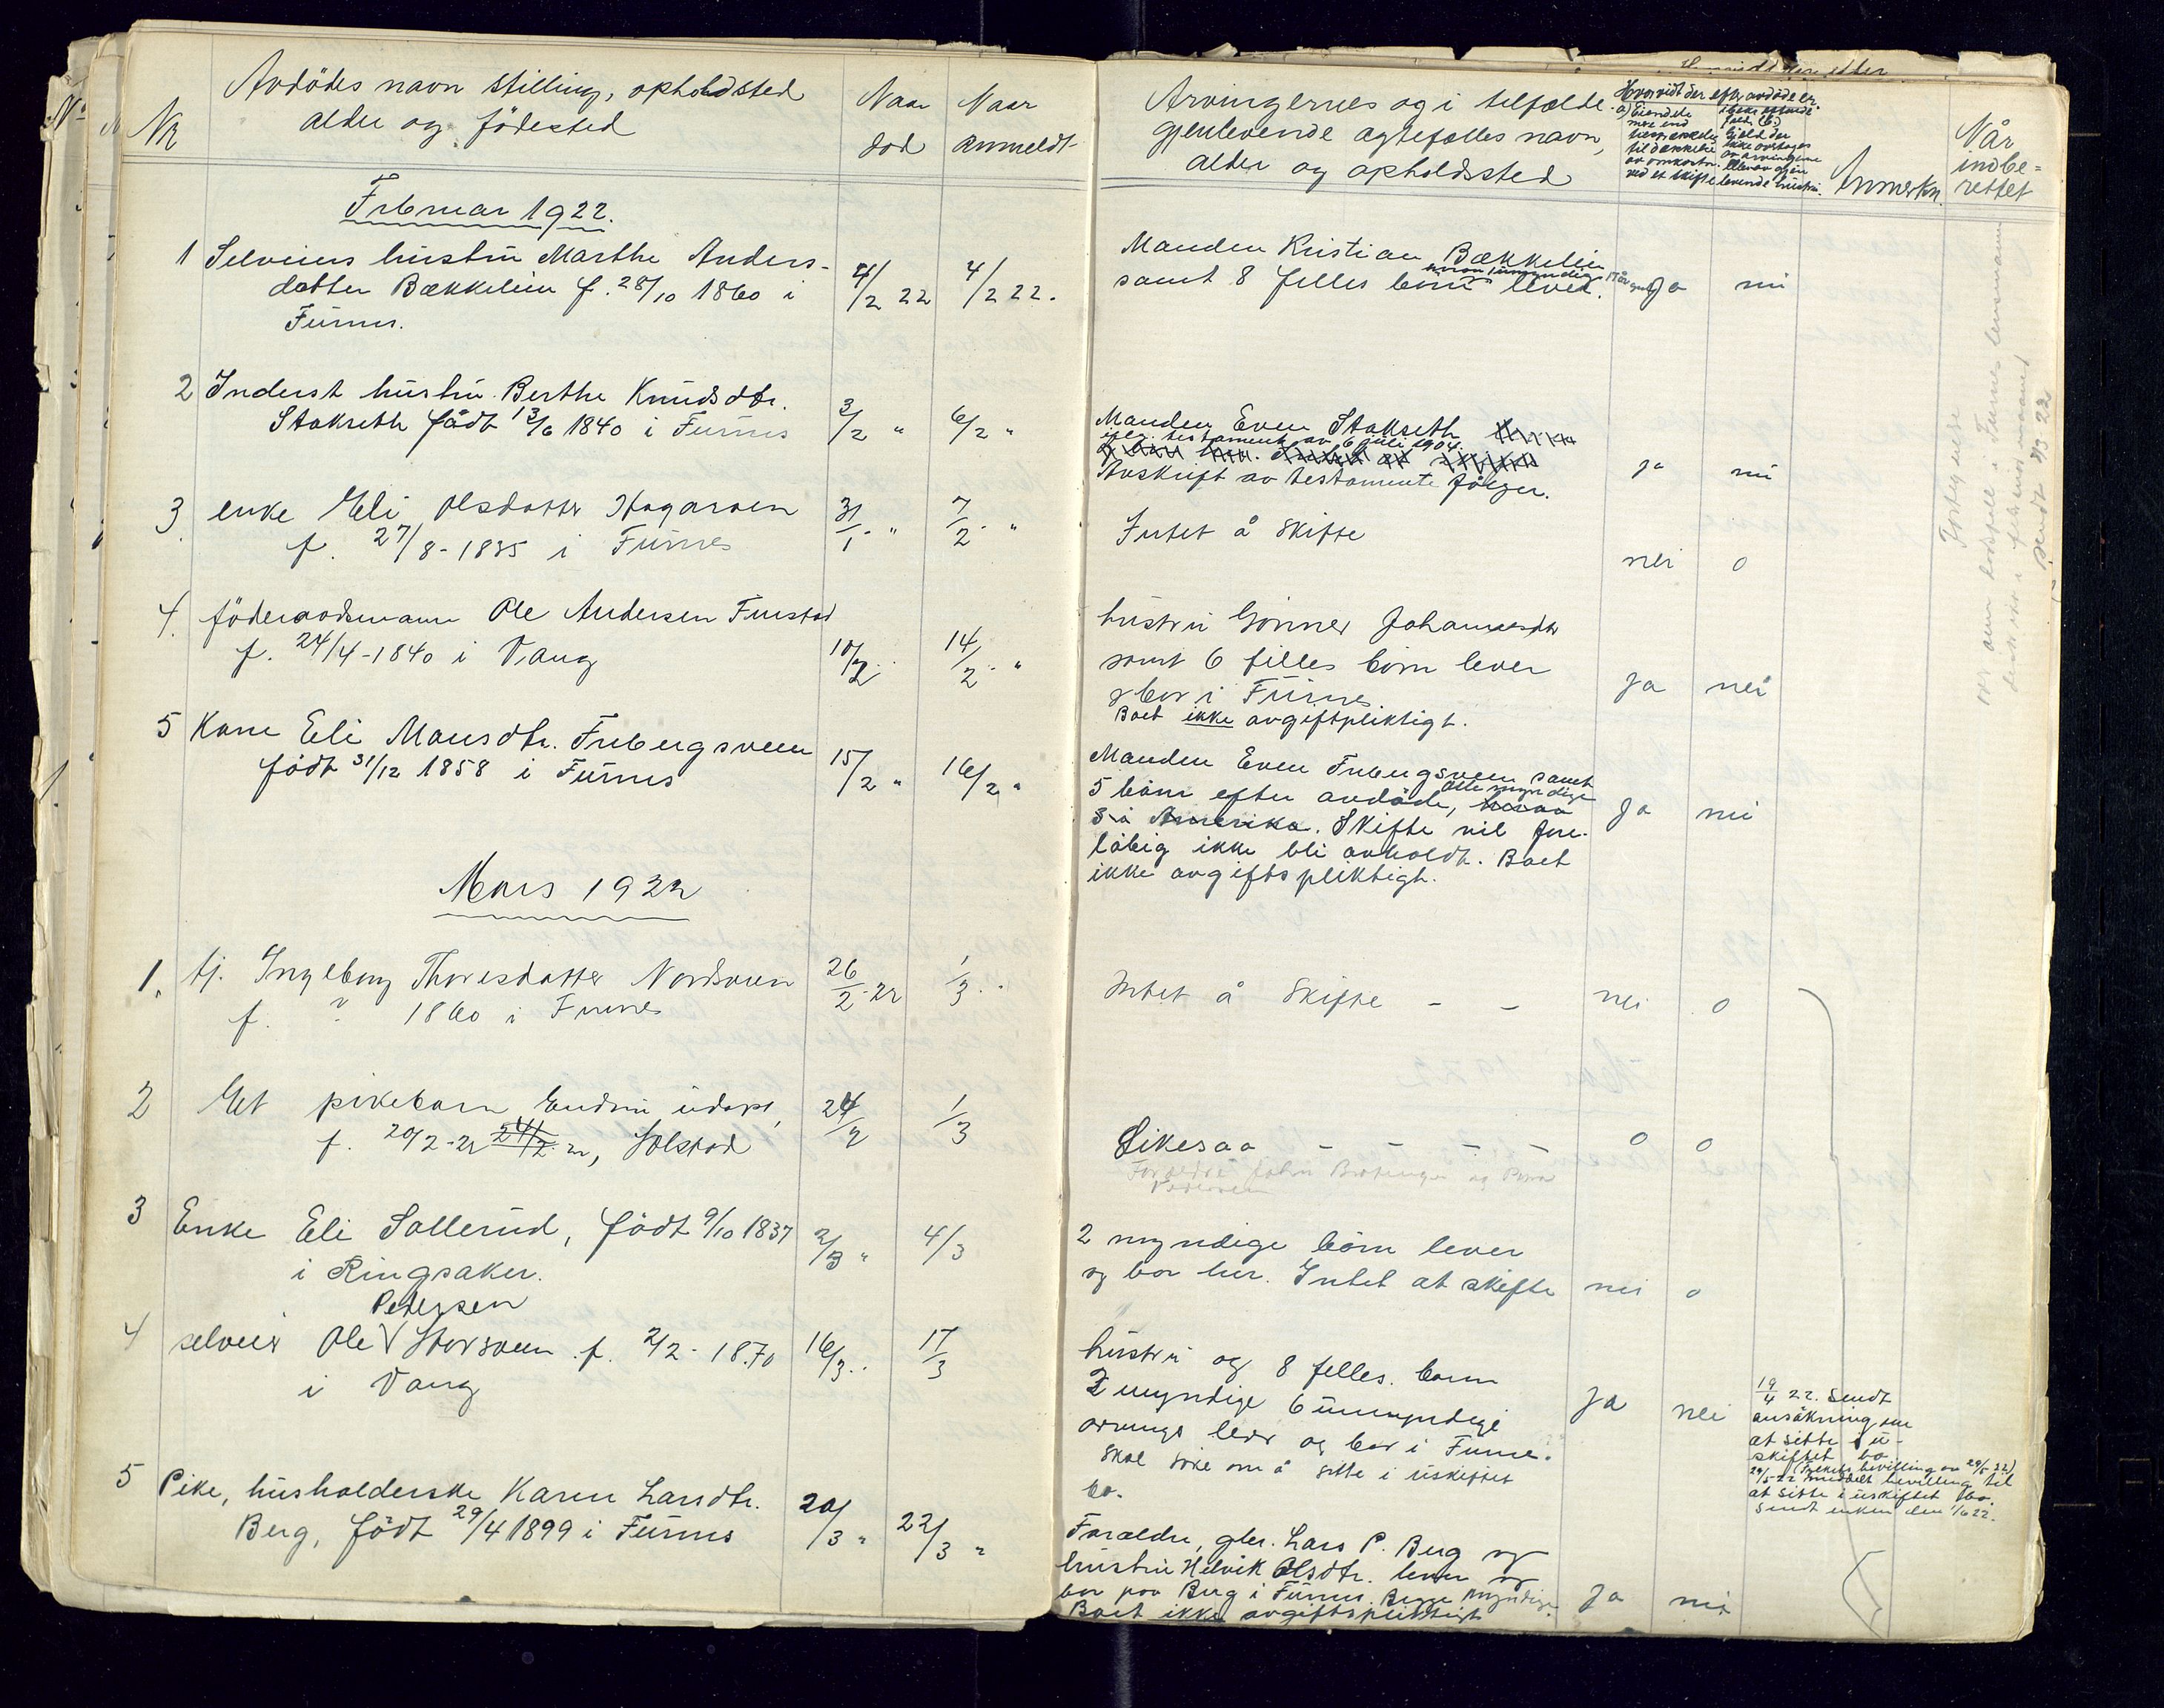 Nr
Avdödes navn stilling, opholdsted
alder og födested
Naar
död
Naar
anmeldt
Februar 1922.
1 Selveiers hustru Marthe Anders-
datter Bækkelien f. 28/10 1860 i
Furnes.
4/2 22
4/2 22.
2 Inderst hustru Berthe Knudsdtr.
Stakseth född 13/6 1840 i Furnes
3/2 "
6/2 "
3 enke Eli Olsdatter Hagaroen
f. 27/8-1835 i Furnes
31/1 - "
7/2 - "
4. föderaadsmann Ole Andersen Furstad
f. 24/4-1840 i Vang
10/2
14/2 - "
5 Kone Eli Monsdtr. Frebergsveen
född 31/12 1858 i Furnes
15/2 "
16/2 "
Mars 1922
1. tj. Ingeborg Thoresdatter Nordsveen
f. ? 1860 i Furnes
26/2-22
1/3
2 Et pikebarn Endnu udøpt,
f. 20/2-22 24/2 22, Solstad
24/2
1/3
3 Enke Eli Sollerud, född 9/10 1837
i Ringsaker.
2/3 "
4/3
4 selveier Ole Petersen Storsveen f. 2/2-1870
i Vang
16/3
17/3
5 Pike, husholderske Karen Larsdtr.
Berg, född 29/4 1899 i Furnes
20/3 "
22/3 "
Arvingernes og i tilfælde
gjenlevende ægtefælles navn,
alder og opholdssted
Hvorvidt der eft. avdöde er.
Anmerkn.
Når
indbe=
rettet
Manden Kristian Bækkelien
samt 8 felles börn lever.
Ja nei
Manden Even Stakseth
iflg. testament av 6 juli 1904.
Avskrift av testamente fölger.
Ja nei
Intet å skifte
nei 0
hustru Gönner Johannesdtr
samt 6 felles börn lever
og bor i Furnes
Boet ikke avgiftpliktigt.
Ja nei
Manden Even Frebergsveen samt
5 börn efter avdöde, alle myndige
3 i Amerika. Skifte vil fore-
löbig ikke bli avholdt. Boet
ikke avgiftspliktigt.
Ja nei
Intet å skifte - -
nei 0
Likesaa - - - -
0 0
2 myndige börn lever
og bor her. Intet at skifte
nei 0
hustru og 8 felles barn
2 myndige 6 umyndige
arvinge lever og bor i Furnes.
Skal söke om å sitte i uskiftet
bo.
Ja nei
19/4 22. Sendt
ansökning om
at sitte i u-
skiftet bo
29/5-22 meddelt bevilling til
at sitte i uskiftet bo.
Sendt enken den 1/6 22.
Forældre, gbr. Lars P. Berg og
hustru Helvik Olsdtr. lever og
bor paa Berg i Furnes. Begge myndige.
Boet ikke avgiftspliktigt
Ja nei